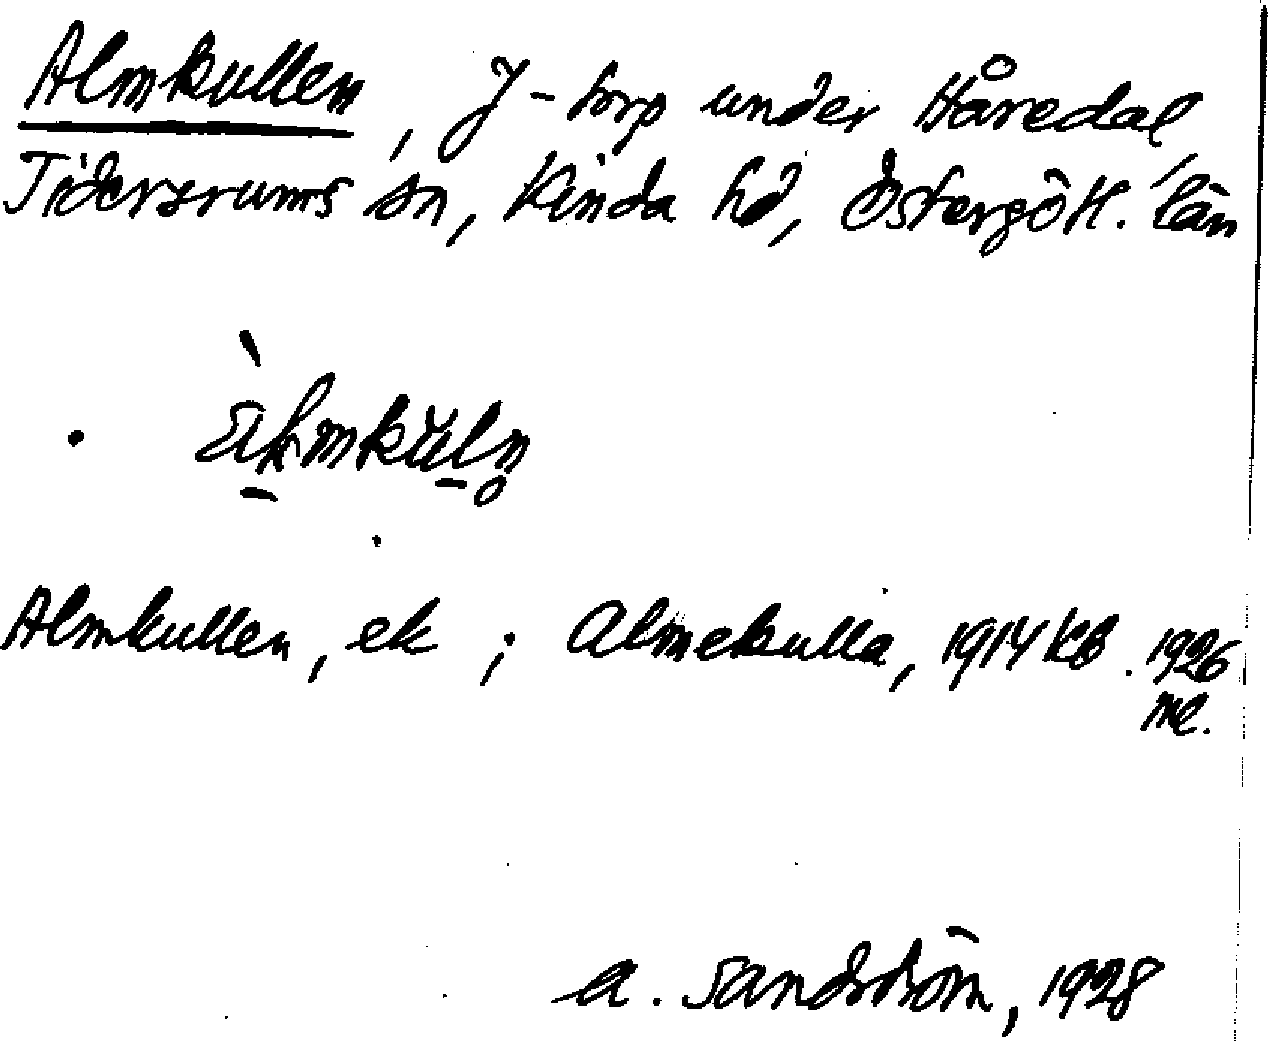 Almkullen, J-torp under Håredal,
Tidersrums sn, Kinda hd, Östergötl. län
Almkullen, ek ; Almekulla, 1914 KB. 1926
ml.
A. Sandström, 1928